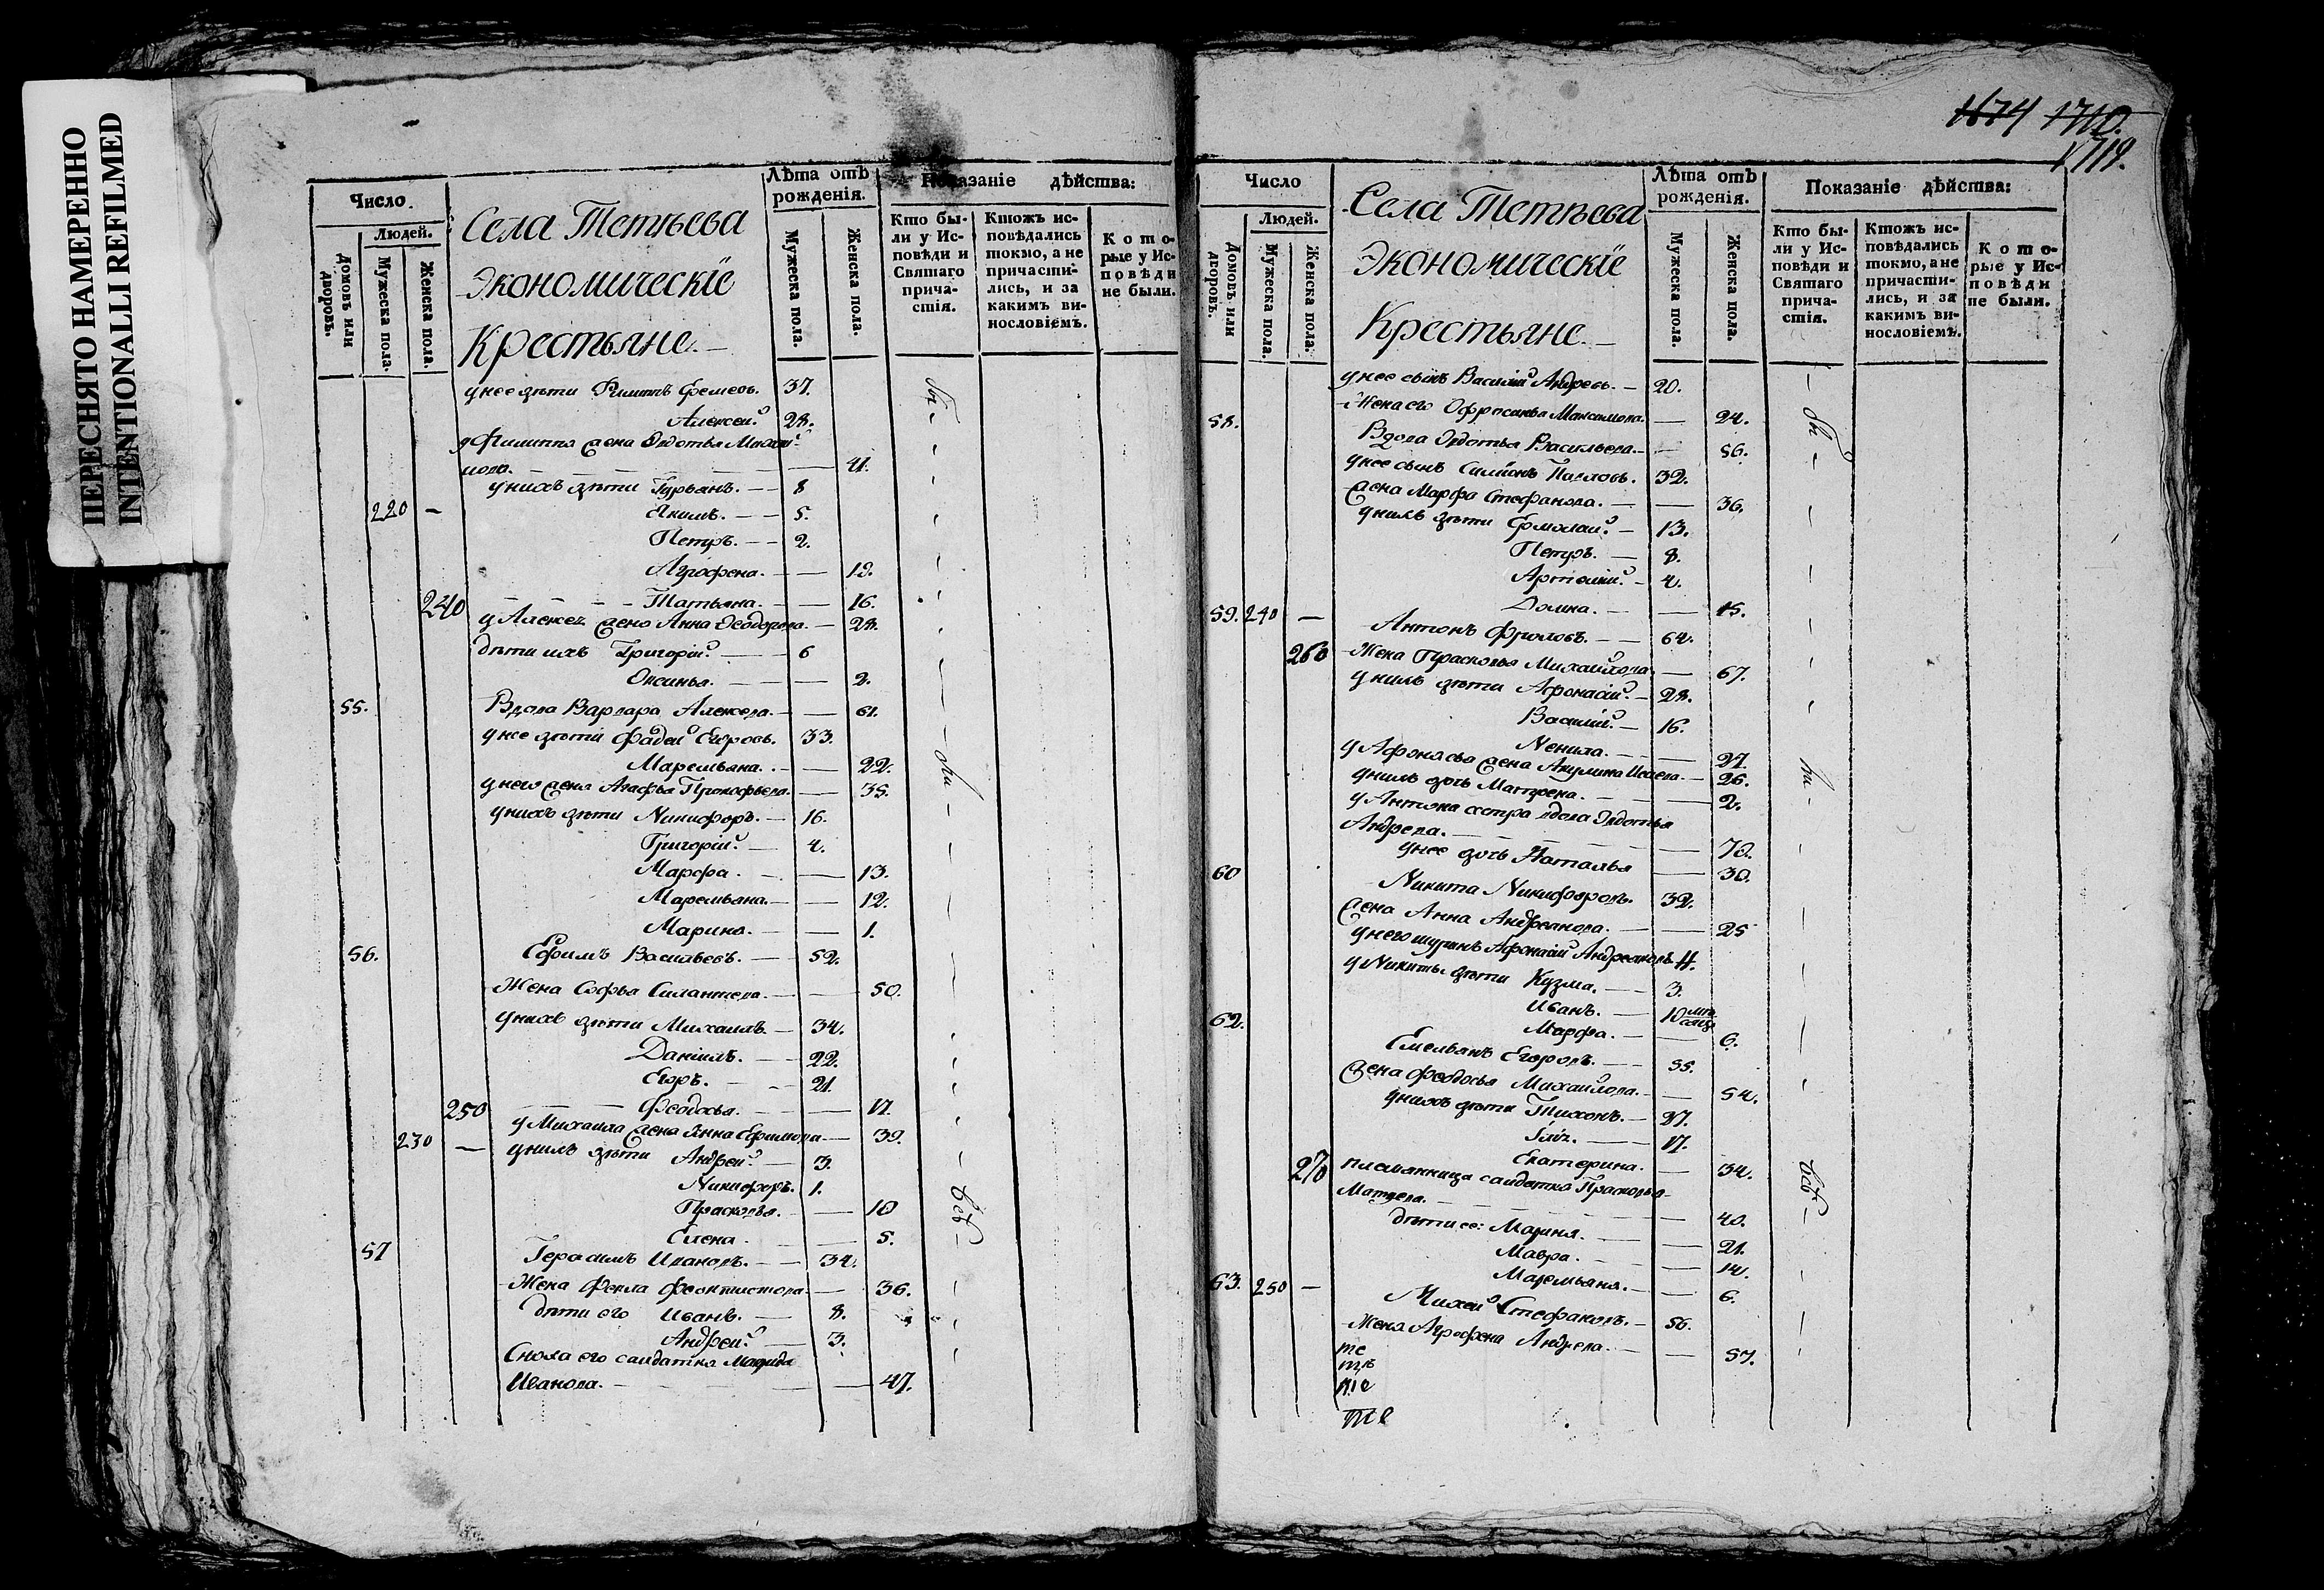 ПЕРЕСНЯТО НАМЕРЕННО
INTENTIONALLI REFILMED
Число.
Людей.
Домовъ или дворовъ.
Мужеска пола.
Женска пола.
Села Тетѣева
Экономическіе
Крестьяне.
Лѣта отъ рожденія.
Мужеска пола.
Женска пола.
Показаніе дѣйства:
Кто бы-
ли у Ис-
повѣди и
Святаго
прича-
стія.
Ктожъ ис-
повѣдались
токмо, а не
причасти-
лись, и за
какимъ ви-
нословіемъ.
Кото-
рые у Ис-
повѣди
не были.
у нее дѣти Филиппъ 37.
Алексѣй 28.
у Филиппа жена Овдотья
41.
у нихъ дѣти Гурьянъ. 8
220 – Якимъ. 5.
Петръ. 2.
Агрофена. 19.
240 Татьяна. 16.
у Алексѣя жена Анна Ѳеодорова. 28.
дѣти ихъ Григорій. 6
Оксинья. 2.
55. Вдова Варвара Алексѣева. 61.
у нее дѣти Фадей Егоровъ. 33.
Маремьяна. 22.
у него жена Агафья Прокофьева. 35.
у нихъ дѣти Никифоръ. 16.
Григорій. 4.
Марфа. 13.
Маремьяна. 12.
Марина. 1.
56. Ефимъ Васильевъ. 52.
Жена Софья Силантьева. 50.
у нихъ дѣти Михаилъ. 34.
Даніилъ. 22.
Егоръ. 21.
250 Феодосья. 17.
у Михаила жена Анна Ефимова 39.
230 – у нихъ дѣти Андрей. 3.
Никифоръ. 1.
Прасковья. 10
Елена. 5.
57 Герасимъ Ивановъ. 34.
Жена Фекла Феоктистова. 36.
дѣти его Иванъ. 8.
Андрей. 3.
Сноха его салдатка
Иванова. 47.
1674 1710.
1719.
Число
Людей.
Домовъ или дворовъ.
Мужеска пола.
Женска пола.
Села Тетѣева
Экономическіе
Крестьяне.
Лѣта отъ рожденія.
Мужеска пола.
Женска пола.
Показаніе дѣйства:
Кто бы-
ли у Ис-
повѣди и
Святаго
прича-
стія.
Ктожъ ис-
повѣдались
токмо, а не
причасти-
лись, и за
какимъ ви-
нословіемъ.
Кото-
рые у Ис-
повѣди
не были.
у нее сынъ Василій Андреевъ. 20.
Жена его Офросинья Максимова. 24.
58. Вдова Овдотья Васильева. 56.
у нее сынъ Симіонъ Павловъ. 32.
жена Марфа Стефанова. 36.
у нихъ дѣти Ермолай. 13.
Петръ. 8.
Артемій. 4.
Домна. 15.
59. 240 – Антонъ Фроловъ. 64.
260 Жена Прасковья Михайлова. 67.
у нихъ дѣти Афонасій. 28.
Василій. 16.
Ненила. 27.
у Афонасья жена Акулина 26.
у нихъ дочь Матрена. 2.
у Антона сестра вдова Овдотья
Андреева. 70.
у нее дочь Наталья 30.
60 Никита Никифоровъ. 32.
жена Анна Андреянова. 25
у него шуринъ Афонасій Андреяновъ 11.
у Никиты дѣти Кузма. 3.
Иванъ. 10
Марфа. 6.
62. Емельянъ Егоровъ. 55.
жена Феодосья Михайлова. 54.
у нихъ дѣти Тихонъ. 27.
17.
Екатерина. 34.
270 племянница салдатка Прасковья
Матвеева. 40.
дѣти ее: Марина. 21.
Мавра. 14.
Маремьяна. 6.
63. 250 – Михей Стефановъ. 56.
Жена Агрофена Андреева. 57.
те